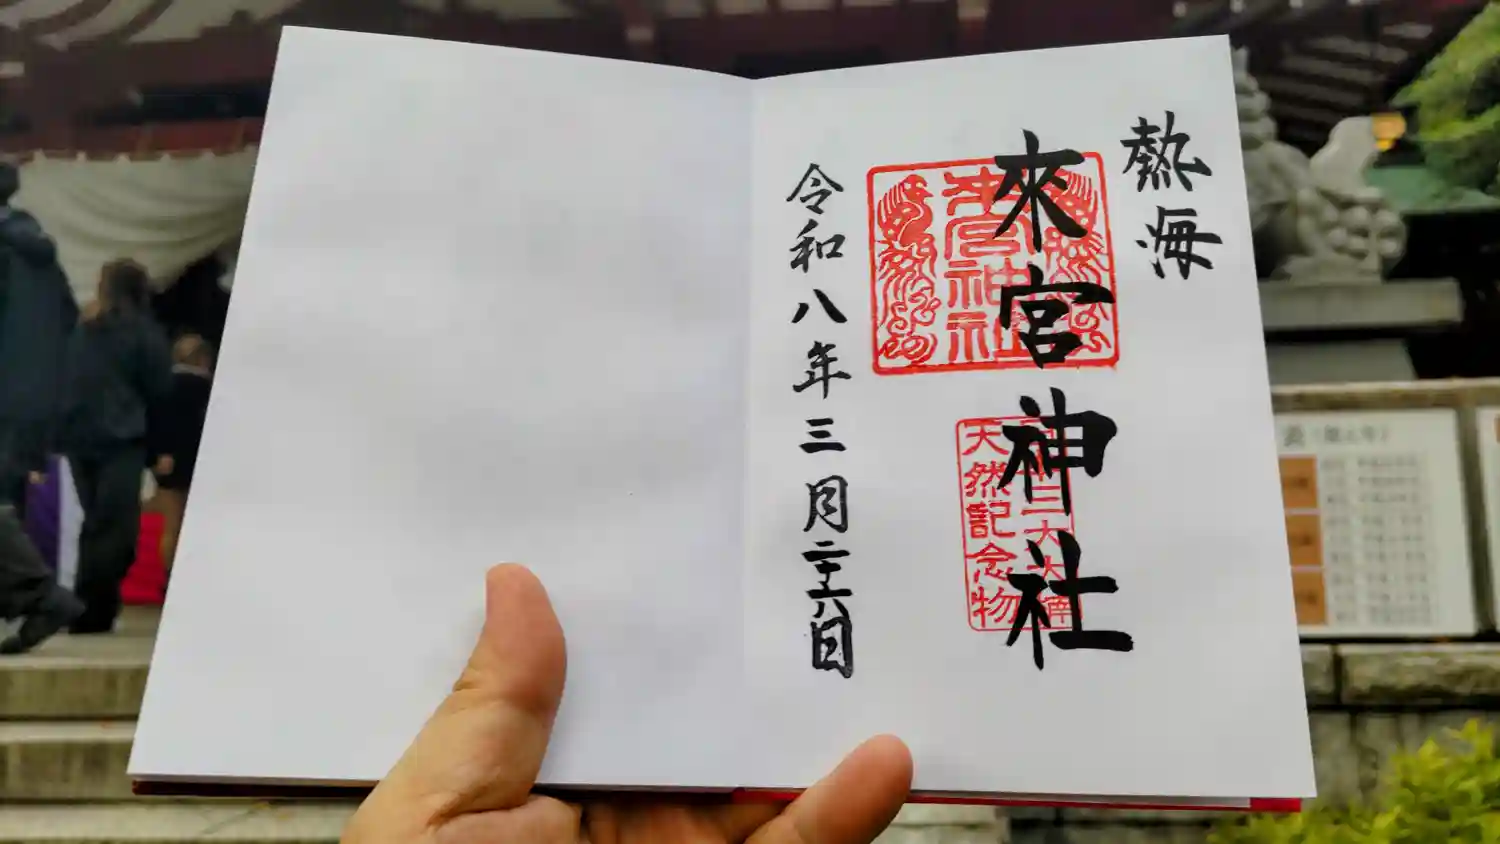 熱海
來宮神社
來宮神社
天然記念物
令和八年三月二十六日